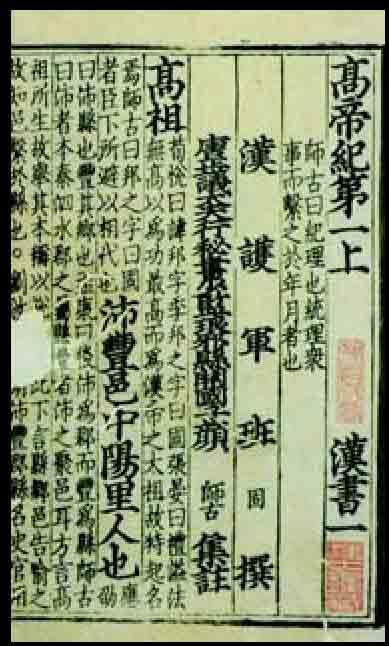 髙帝紀第一上 漢書一
師古曰紀理也統理衆
事而繫之於年月者也
漢護軍班固撰
唐議大夫行秘書監琅邪縣開國子顏師古集註
髙祖 荀悅曰諱邦字季邦之字曰國張晏曰禮謚法
無髙以為功最髙而為漢帝之太祖故特起名
焉師古曰邦之字曰國
者臣下所避以相代也
沛豐邑中陽里人也 應
劭
曰沛縣也豐其鄉也孟康曰後沛為郡而豐為縣師古
曰沛者本秦泗水郡之屬縣豐者沛之聚邑耳方言髙
祖所生故舉其本稱以 此下言縣鄉邑告喻之
故知邑繫於縣也 沛豐郡縣名史官用